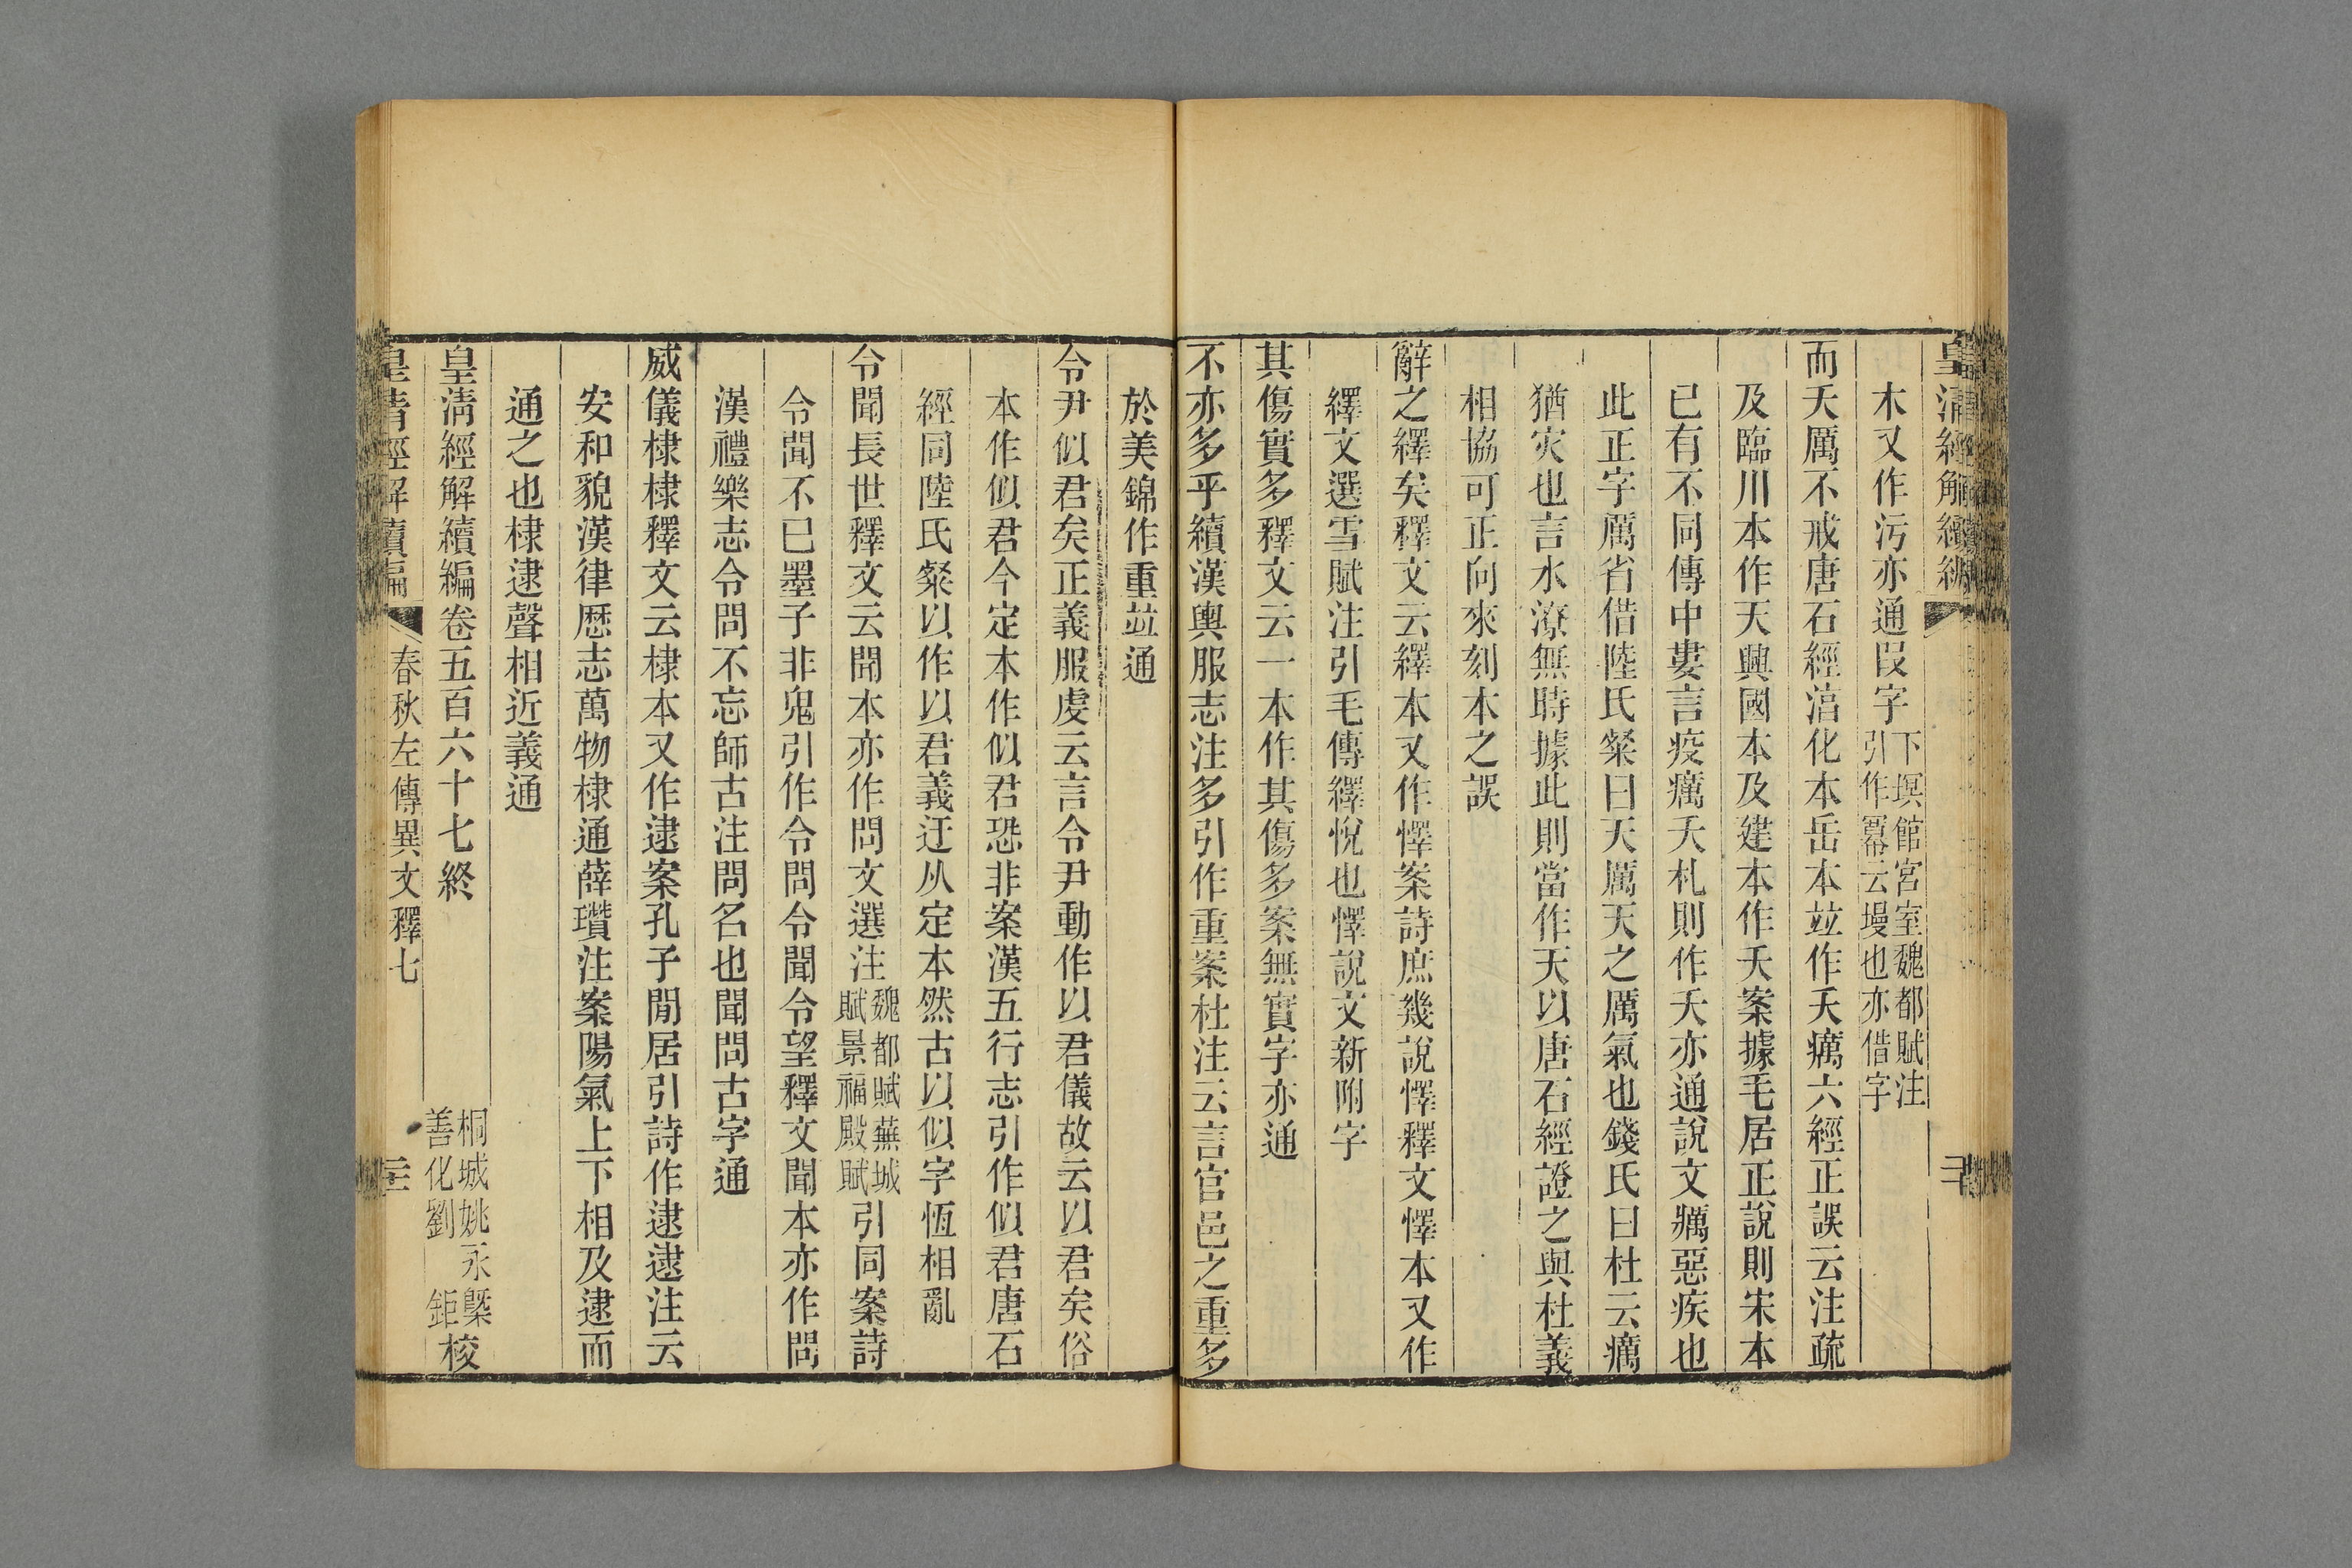 皇清經解續編
木又作污亦通叚字下塓館宮室魏都賦注引作冪云墁也亦借字
而夭厲不戒唐石經湻化本岳本竝作夭癘六經正誤云注疏
及臨川本作天興國本及建本作夭案據毛居正說則宋本
已有不同傳中婁言疫癘夭札則作夭亦通說文癘惡疾也
此正字厲省借陸氏粲曰天厲天之厲氣也錢氏曰杜云癘
猶灾也言水潦無時據此則當作天以唐石經證之與杜義
相協可正向來刻本之誤
辭之繹矣釋文云繹本又作懌案詩庶幾說懌釋文懌本又作
繹文選雪賦注引毛傳繹悅也懌說文新附字
其傷實多釋文云一本作其傷多案無實字亦通
不亦多乎續漢輿服志注多引作重案杜注云言官邑之重多
於美錦作重竝通
令尹似君矣正義服虔云言令尹動作以君儀故云以君矣俗
本作似君今定本作似君恐非案漢五行志引作似君唐石
經同陸氏粲以作以君義迂从定本然古以似字恆相亂
令聞長世釋文云聞本亦作問文選注魏都賦蕪城賦景福殿賦引同案詩
令聞不已墨子非鬼引作令問令聞令望釋文聞本亦作問
漢禮樂志令問不忘師古注問名也聞問古字通
威儀棣棣釋文云棣本又作逮案孔子閒居引詩作逮逮注云
安和貌漢律厯志萬物棣通薛瓚注案陽氣上下相及逮而
通之也棣逮聲相近義通
皇清經解續編卷五百六十七終
桐城姚永㮣
善化劉鉅
校
皇清經解續編
春秋左傳異文釋七